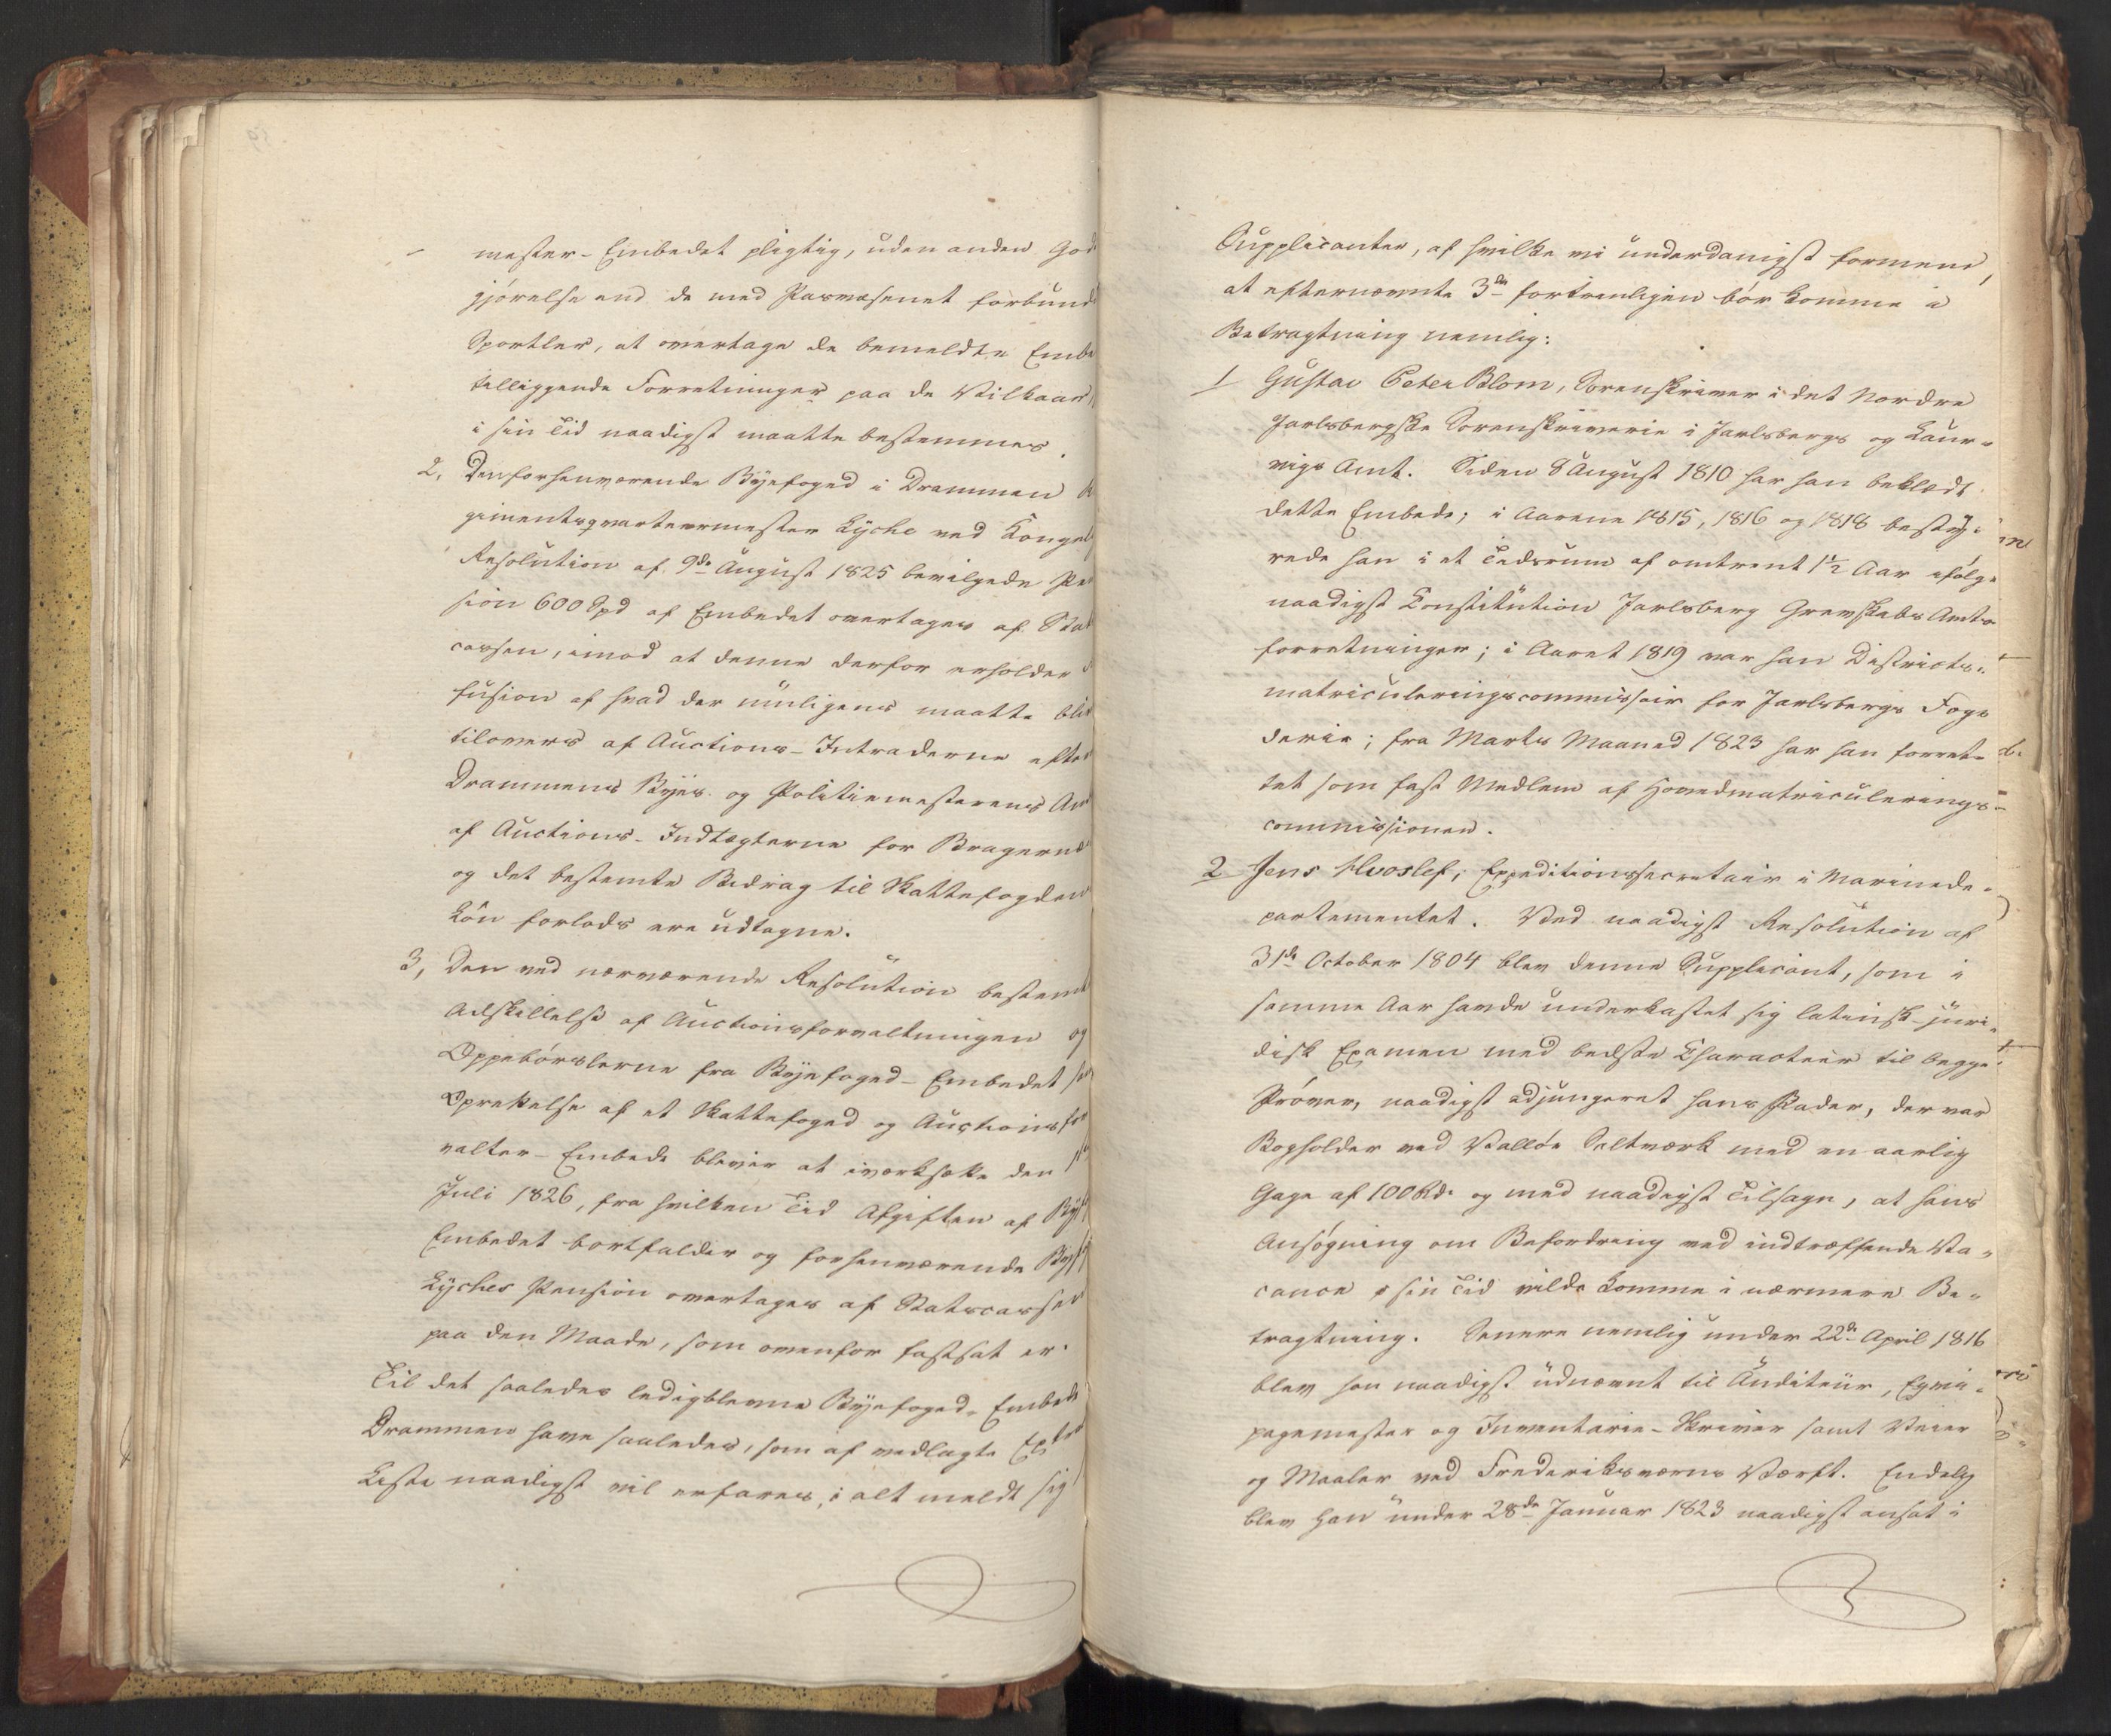 mester-Embedet pligtig, uden anden God
gjørelse end de med Pasvæsenet forbund
Sportler, at overtage de bemeldte Embe
tilliggende Forretninger paa de Vilkaar
i sin Tid naadigst maatte bestemmes.
2, Den forhenværende Byefoged i Drammen R
gimentsqvarteermester Lyche ved Kongel
Resolution af 9de August 1825 bevilgede Pe
sion 600 Spd af Embedet overtages af Stat
cassen, imod at denne derfor erholder
fusion af hvad der muligens maatte bliv
tilovers af Auctions-Intraderne efter
Drammens Byes og Politiemesterens An
af Auctions-Indtægterne for Bragernæ
og det bestemte Bidrag til Skattefogdens
Løn forlods ere udtagne.
3, Den ved nærværende Resolution bestemt
Adskillelse af Auctionsforvaltningen og
Oppebørslerne fra Byefoged-Embedet sa
Oprettelse af et Skattefoged og Auctionsfor
valter-Embede bliver at iværksætte den 1ste
Juli 1826, fra hvilken Tid Afgiften af Byf
Embedet bortfalder og forhenværende Byf
Lyches Pension overtages af Statscassen
paa den Maade, som ovenfor fastsat er.
Til det saaledes ledigblevne Byefoged-Embede
Drammen have saaledes, som af vedlagte Extra
Liste naadigst vil erfares, i alt meldt sig
Supplicanter, af hvilke vi underdanigst formene,
at efternævnte 3de fortrinligen bør komme i
Betragtning nemlig:
1 Gustav Peter Blom, Sorenskriver i det Nordre
Jarlsbergske Sorenskriverie i Jarlsbergs og Laur-
vigs Amt. Siden 8 August 1810 har han beklædt
dette Embede; i Aarene 1815, 1816 og 1818 besty-
rede han i et Tidsrum af omtrent 1½ Aar ifølge
naadigst Constitution Jarlsberg Grevskabs Amts-
forretninger; i Aaret 1819 var han Districts-
matriculeringscommissair for Jarlsbergs Fog-
derie; fra Marts Maaned 1823 har han forret-
tet som fast Medlem af Hovedmatriculerings-
commissionen.
2 Jens Hvoslef, Expeditionssecretair i Marinede-
partementet. Ved naadigst Resolution af
31de October 1804 blev denne Supplicant, som i
samme Aar havde underkastet sig latinsk-juri-
disk Examen med bedste Character til begge
Prøver, naadigst adjungeret hans Fader, der var
Bogholder ved Valløe Saltværk med en aarlig
Gage af 100 Rd. og med naadigst Tilsagn, at hans
Ansøgning om Befordring ved indtræffende Va-
cance i sin Tid vilde komme i nærmere Be-
tragtning. Senere nemlig under 22de April 1816
blev han naadigst udnævnt til Auditeur, Eqvi-
pagemester og Inventarie-Skriver samt Veier
og Maaler ved Frederiksværns Værft. Endelig
blev han under 28de Januar 1823 naadigst ansat i